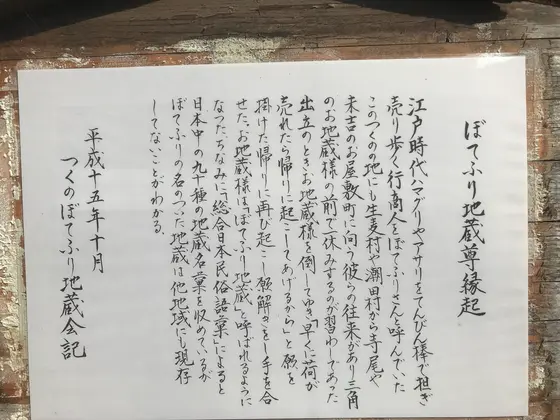 ぼてふり地蔵尊縁起
江戸時代ハマグリやアサリをてんびん棒で担ぎ
売り歩く行商人をぼてふりさんと呼んでいた
このつくのの地にも生麦村や潮田村から寺尾や
末吉のお屋敷町に向う彼らの往来があり三角
のお地蔵様の前で一休みするのが習わしであった
出立のときお地蔵様を倒してゆき「早くに荷が
売れたら帰りに起こしてあげるから」と願を
掛けた帰りに再び起こし願解きをし手を合
せた。お地蔵様は「ぼてふり地蔵」と呼ばれるように
なった。ちなみに、「総合日本民俗語彙」によると
日本中の九十種の地蔵名彙を収めているが
ぼてふりの名のついた地蔵は他地域にも現存
してないことがわかる。
平成十五年十月
つくのぼてふり地蔵会記